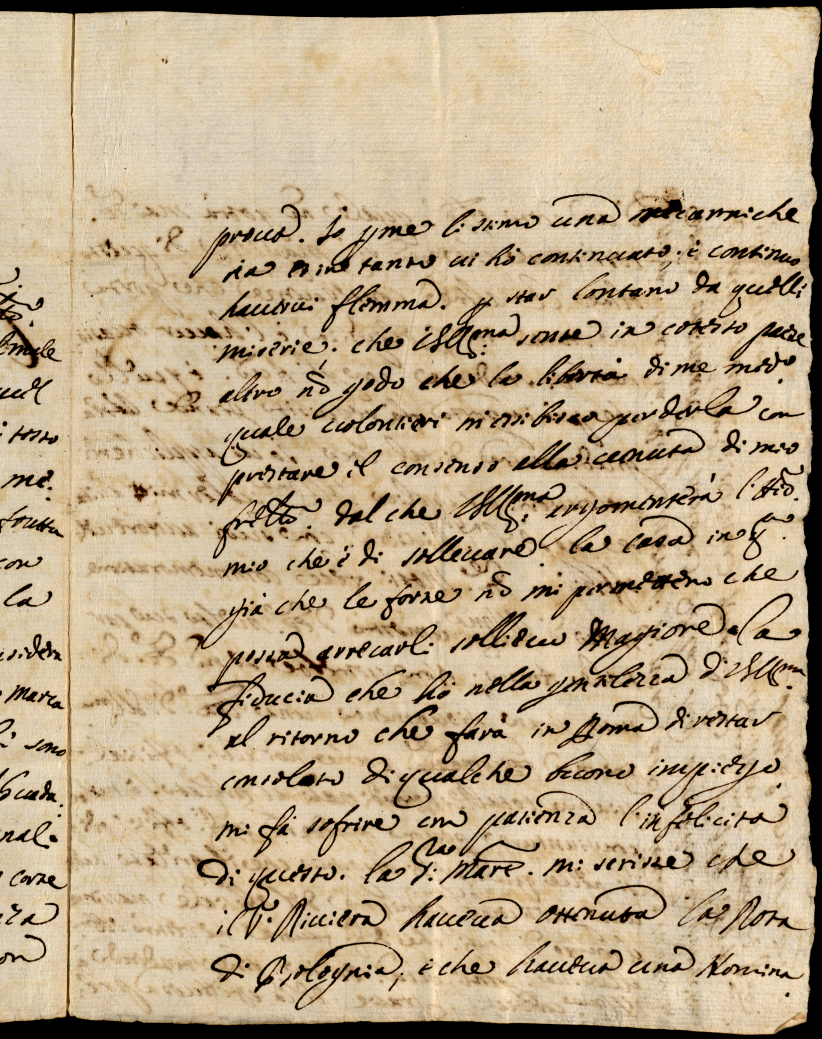 prova. Io p me li stimo una mecanniche
ria e in tanto vi hò continuato, e continuo
havervi flemma. p star lontano da quelli
miserie; che VSIll.ma sente in cotesto paese
altro nõ godo che la libertà di me med.o
quale volontieri m'esibisco perderla con
prestare il consenso alla venuta di mio
frello. Dal che VSIll.ma argomenterà l'
mio che è di sollevare la casa in
già che le forze nõ mi permettono che
possa arrecarli sollievo Magiore la
fiducia che hò nella gentilezza di VSIll.ma
al ritorno che farà in Roma di restar
consolato di qualche buono impiego
mi fà sofrire con patienza l'infelicità
di questo. la S.ra Mãre. mi scrisse che
il S.r Riviera haveva ottenuta la Rota
di Bolognia, e che haveva una Nomina
emule
i tosto
me:
con
la
Marca
sono
nal
corse